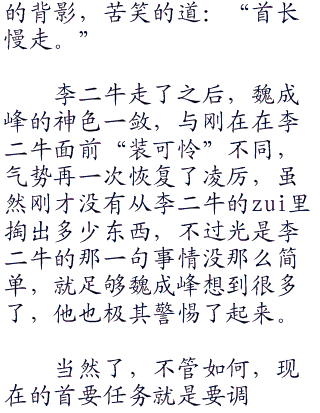 的背影，苦笑的道：“首长
慢走。”
李二牛走了之后，魏成
峰的神色一敛，与刚在在李
二牛面前“装可怜”不同，
气势再一次恢复了凌厉，虽
然刚才没有从李二牛的zui里
掏出多少东西，不过光是李
二牛的那一句事情没那么简
单，就足够魏成峰想到很多
了，他也极其警惕了起来。
当然了，不管如何，现
在的首要任务就是要调